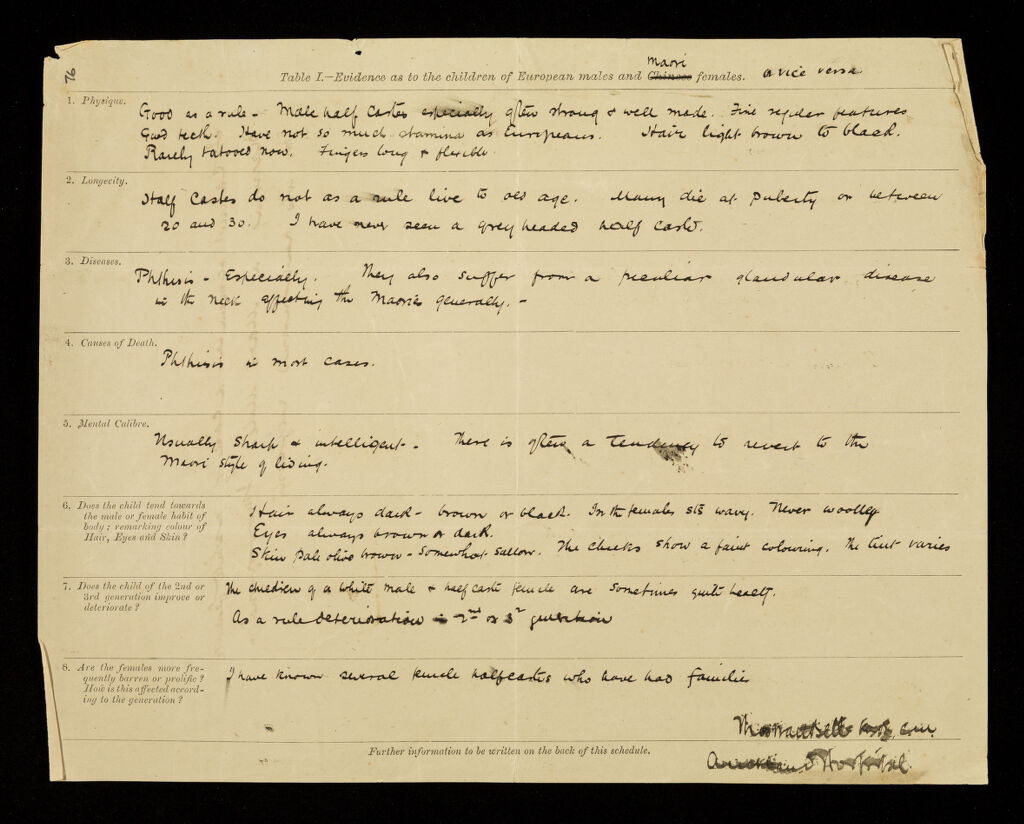 76
Maori
Table I.—Evidence as to the children of European males and Chinese females. or vice versa
1. Physique.
Good as a rule - Male half castes especially often strong & well made. Fine regular features
Good teeth. Have not so much stamina as Europeans. Hair light brown to black.
Rarely tatooed now. Fingers long & flexible.
2. Longevity.
Half Castes do not as a rule live to old age. Many die at puberty or between
20 and 30. I have never seen a grey headed half caste.
3. Diseases.
Phthisis - Especially. They also suffer from a peculiar glandular disease
in the neck affecting the Maories generally. -
4. Causes of Death.
Phthisis in most cases.
5. Mental Calibre.
Usually sharp & intelligent - There is often a tendency to revert to the
Maori style of living.
6. Does the child tend towards
the male or female habit of
body; remarking colour of
Hair, Eyes and Skin?
Hair always dark - brown or black. In the females it is wavy. Never woolley
Eyes always brown or dark.
Skin pale olive brown - somewhat sallow. The cheeks show a faint colouring. The tint varies
7. Does the child of the 2nd or
3rd generation improve or
deteriorate?
The children of a white male & half caste female are sometimes quite healty.
As a rule deterioration in 2nd or 3r generation
8. Are the females more fre-
quently barren or prolific?
How is this affected accord-
ing to the generation?
I have known several female halfcastes who have had families
Further information to be written on the back of this schedule.
Hospital.